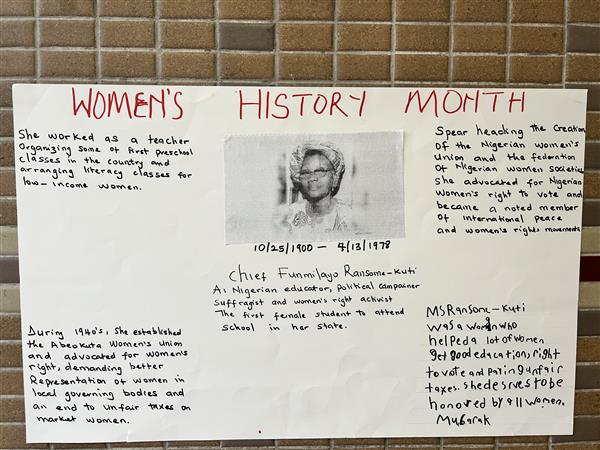 WOMEN'S HISTORY MONTH
She worked as a teacher
Organizing some of first preschool
classes in the country and
arranging literacy classes for
low-income women.
10/25/1900 - 4/13/1978
Chief Funmilayo Ransome-Kuti
As Nigerian educator, political campainer
suffragist and women's right activist
The first female student to attend
school in her state.
Spear heading the creation
of the Nigerian women's
Union and the federation
of Nigerian women societies
she advocated for Nigerian
women's right to vote and
became a noted member
of international peace
and women's rights movements
During 1940's, she established
the Abeokuta Women's union
and advocated for women's
right, demanding better
Representation of women in
local governing bodies and
an end to unfair taxes on
market women.
MS Ransome-Kuti
was a woman who
helped a lot of women
get good education, right
to vote and paying unfair
taxes. she desrves to be
honored by all women.
Mubarak